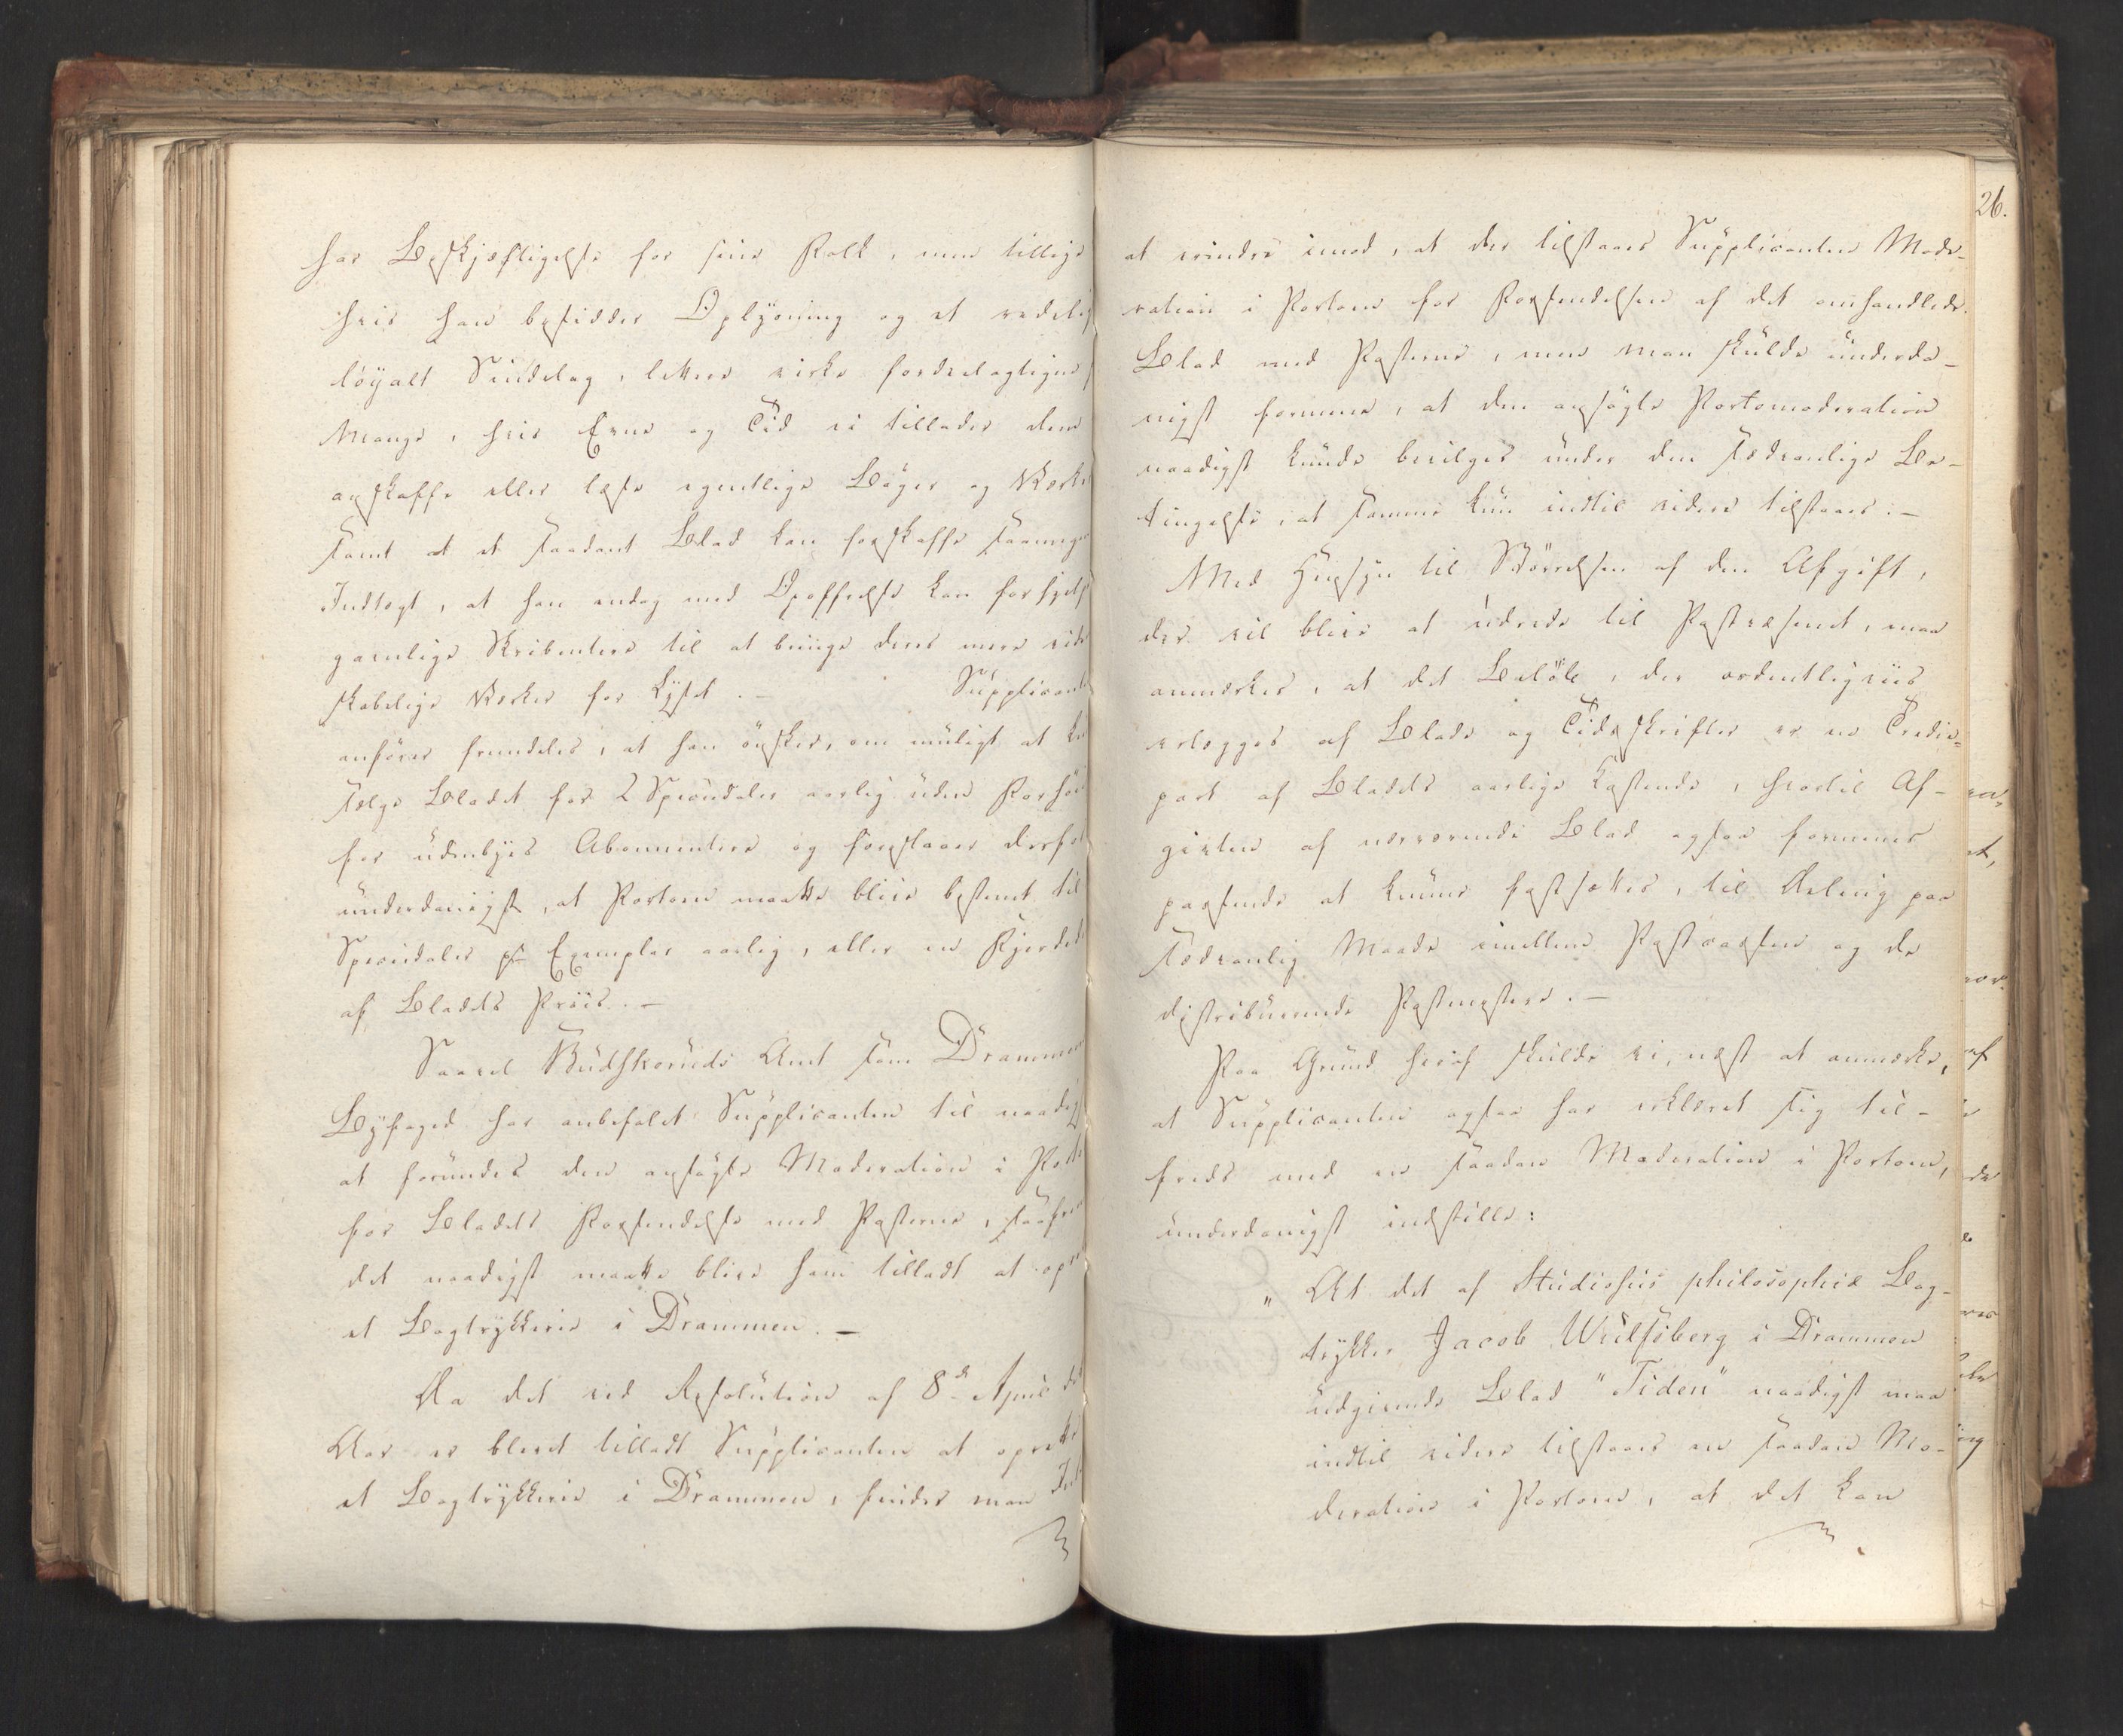 har Beskjæftigelse for sine Folk, men tillige
hvis han besidder Oplysning og et redelig
löyalt Sindelag, lettere virke fordeelagtigen
Mange, hvis Evne og Tid ei tillader dem
anskaffe eller læse egentlige Böger og Værke
samt at et saadant Blad kan forskaffe saamegen
Indtægt, at han endog med Opoffrelse kan forhjelp
gavnlige Skribentere til at bringe deres mere vide
skabelige Værker for Lyset. – Supplicant
anförer fremdeles, at han önsker, om muligt at ku
sælge Bladet for 2 Speciedaler aarlig uden Forhöi
for udenbyes Abonnentere og foreslaaer derfor
underdanigst, at Portoen maatte blive bestemt til
Speciedaler pr Exemplar aarlig, eller en Fjerdede
af Bladets Priis. –
Saavel Budskeruds Amt som Drammens
Byfoged har anbefalet Supplicanten til naadigst
at forundes den ansögte Moderation i Porto
for Bladets Forsendelse med Posterne, saafrem
det naadigst maatte blive ham tilladt at opre
et Bogtrykkerie i Drammen. –
Da det ved Resolution af 8de April d.
Aar er blevet tilladt Supplicanten at oprette
et Bogtrykkerie i Drammen, finder man Intet
26.
at erindre imod, at der tilstaaes Supplicanten Mode-
ration i Portoen for Forsendelsen af det omhandlede
Blad med Posterne, men man skulde underda-
nigst formene, at den ansögte Portomoderation
naadigst kunde bevilges under den sædvanlige Be-
tingelse, at samme kun indtil videre tilstaaes. –
Med Hensyn til Störrelsen af den Afgift,
der vil blive at udrede til Postvæsenet, maa
anmærkes, at det Belöb, der ordentligviis
erlægges af Blade og Tidsskrifter er en Tredie-
part af Bladets aarlige Kostende, hvortil Af-
giften af nærværende Blad ogsaa formenes
passende at kunne fastsættes, til Deling paa
sædvanlig Maade imellem Postcassen og de
distribuerende Postmestere. –
Paa Grund heraf skulde vi, næst at anmærke,
at Supplicanten ogsaa har erklæret sig til-
freds med en saadan Moderation i Portoen,
underdanigst indstille:
" At det af Studiosus philosophiæ Bog-
trykker Jacob Wulfsberg i Drammen
udgivende Blad "Tiden" naadigst maa
indtil videre tilstaaes en saadan Mo-
deration i Portoen, at det kan